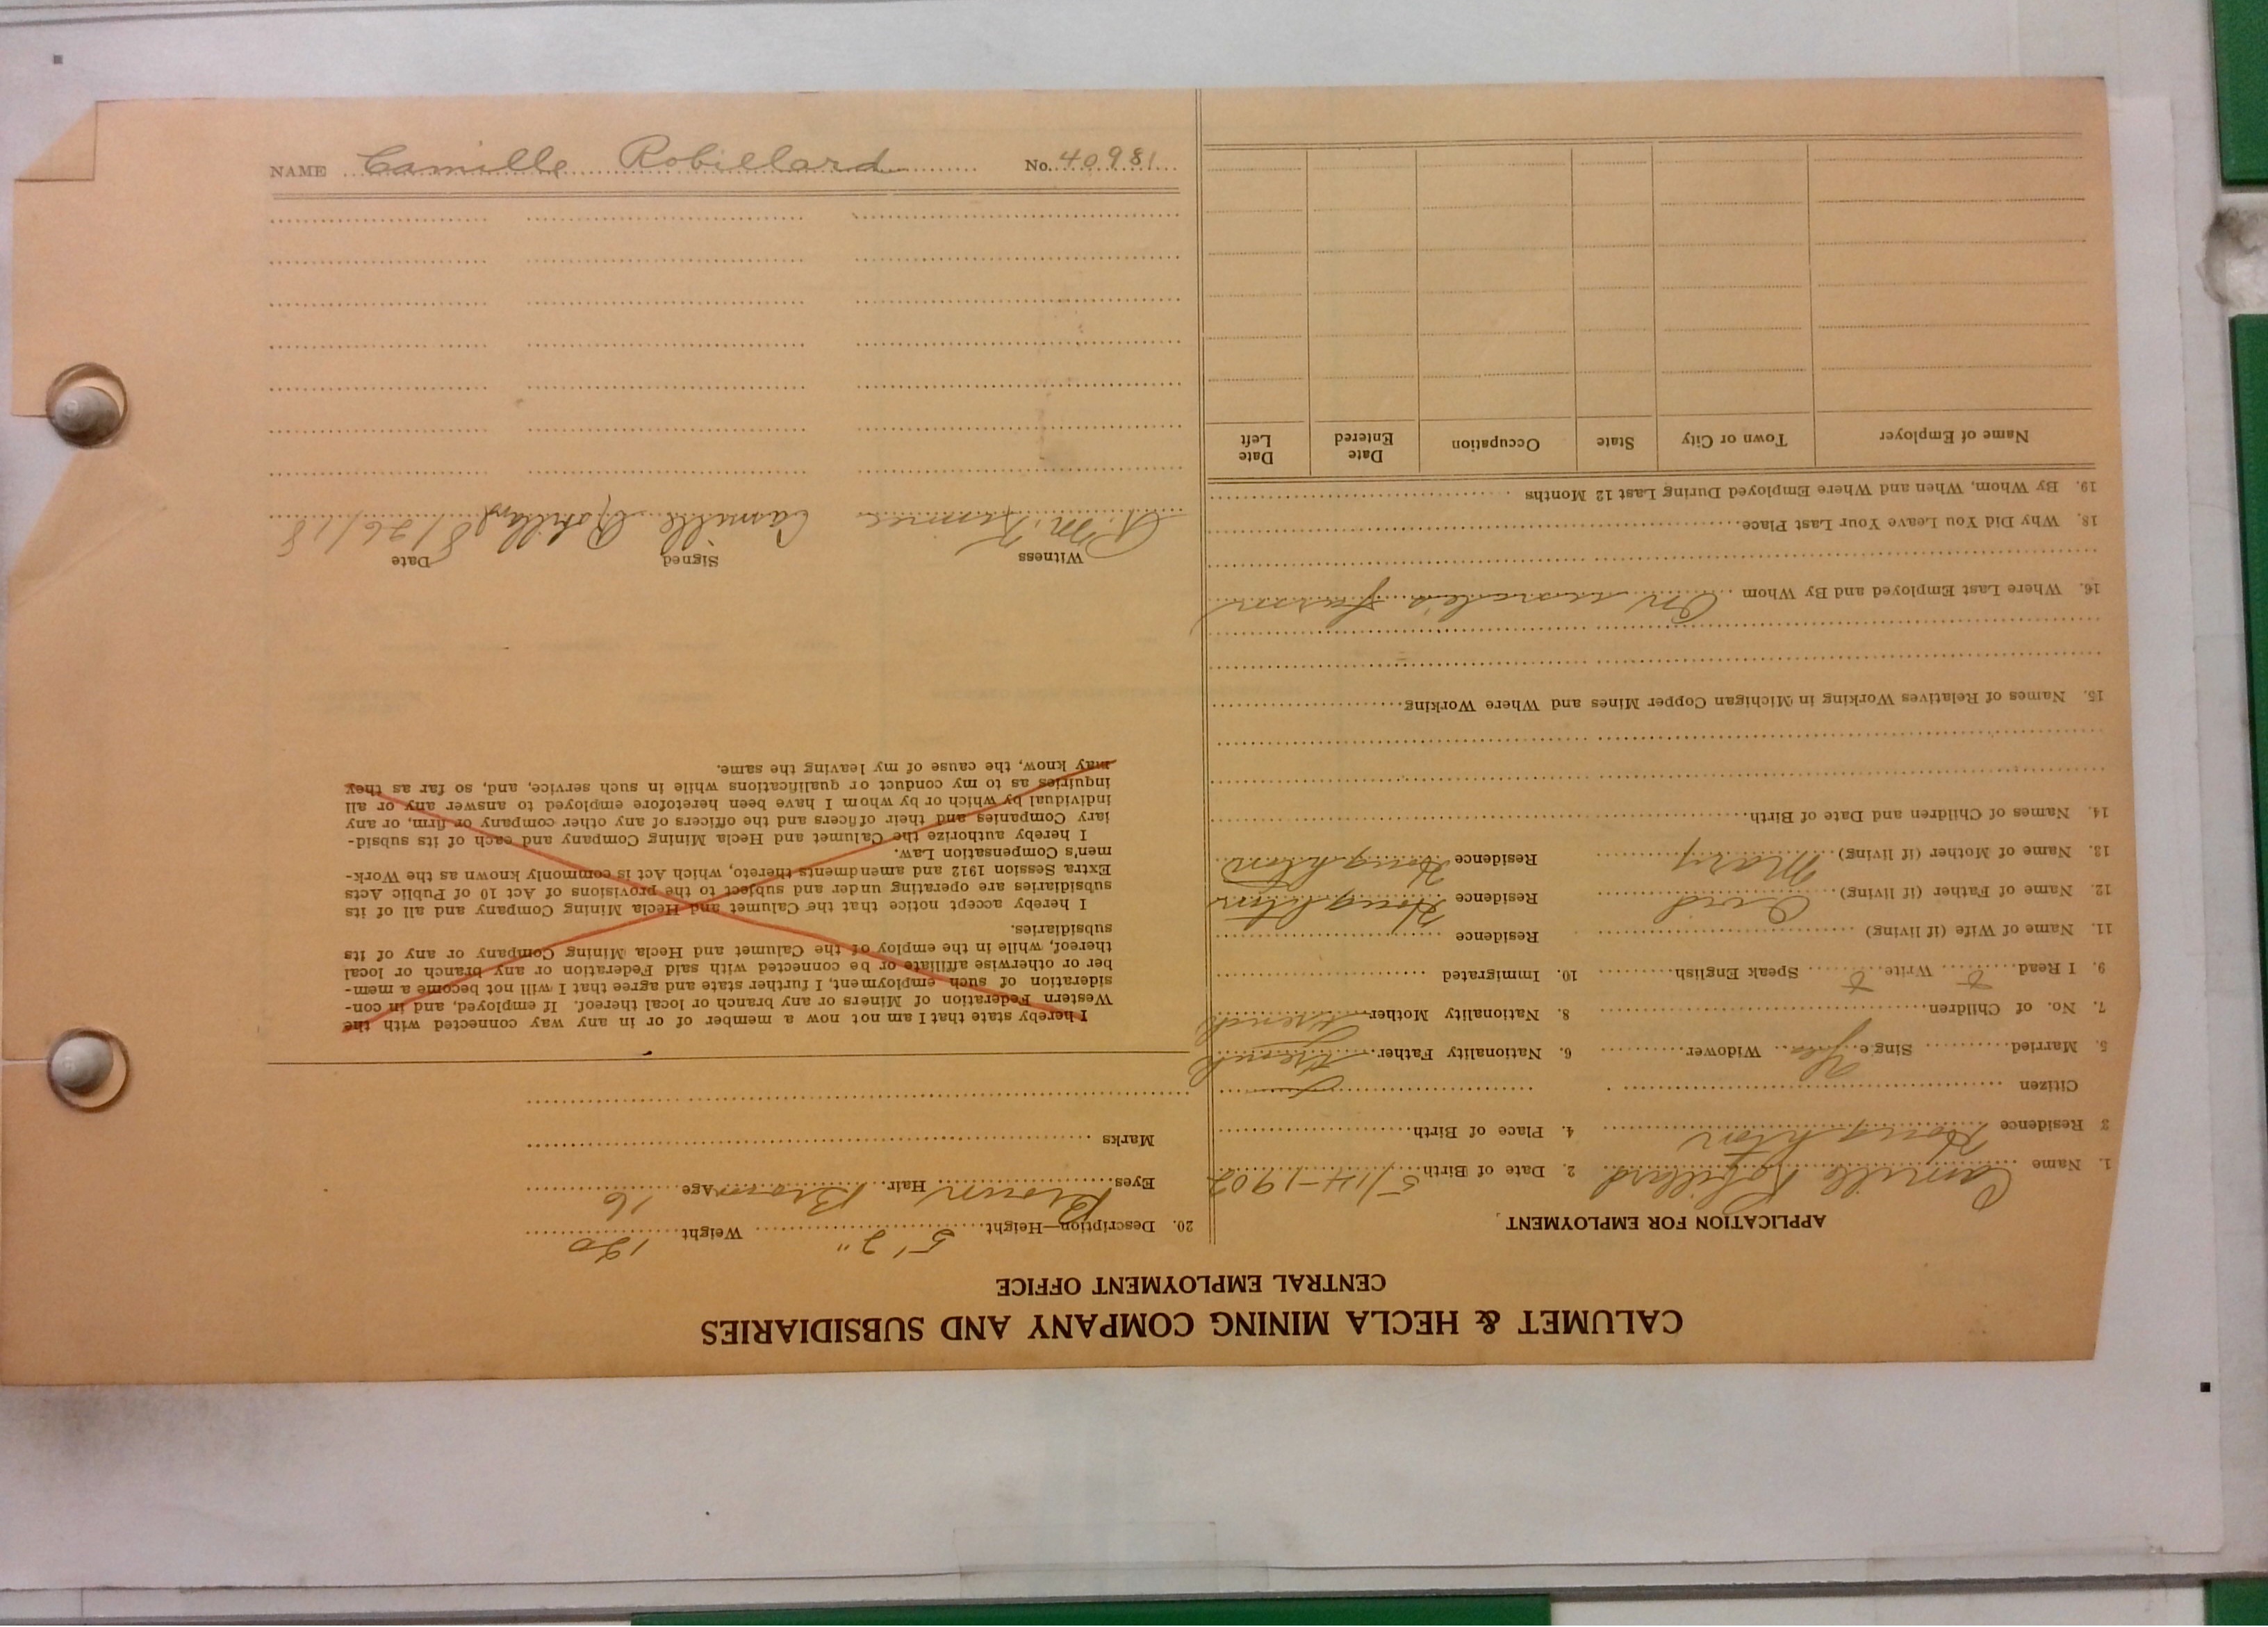 CALUMET & HECLA MINING COMPANY AND SUBSIDIARIES
CENTRAL EMPLOYMENT OFFICE
APPLICATION FOR EMPLOYMENT
1. Name Camille Robillard 2. Date of Birth 5/14-1902
3 Residence Houghton 4. Place of Birth
Citizen
5. Married Sing e Yes Widower 6. Nationality Father French
7. No. of Children 8. Nationality Mother French
9. I Read Write Speak English 10. Immigrated
11. Name of Wife (if living) Residence
12. Name of Father (if living) Residence Houghton
13. Name of Mother (if living) Mary Residence Houghton
14. Names of Children and Date of Birth
15. Names of Relatives Working in Michigan Copper Mines and Where Working
16. Where Last Employed and By Whom On farm
18. Why Did You Leave Your Last Place
19. By Whom, When and Where Employed During Last 12 Months
Name of Employer Town or City State Occupation Date Entered Date Left
20. Description—Height 5' 2" Weight 120
Eyes Brown Hair Brown Age 16
Marks
I hereby state that I am not now a member of or in any way connected with the
Western Federation of Miners or any branch or local thereof. If employed, and in con-
sideration of such employment, I further state and agree that I will not become a mem-
ber or otherwise affiliate or be connected with said Federation or any branch or local
thereof, while in the employ of the Calumet and Hecla Mining Company or any of its
subsidiaries.
I hereby accept notice that the Calumet and Hecla Mining Company and all of its
subsidiaries are operating under and subject to the provisions of Act 10 of Public Acts
Extra Session 1912 and amendments thereto, which Act is commonly known as the Work-
men's Compensation Law.
I hereby authorize the Calumet and Hecla Mining Company and each of its subsid-
iary Companies and their officers and the officers of any other company or firm, or any
individual by which or by whom I have been heretofore employed to answer any or all
inquiries as to my conduct or qualifications while in such service, and, so far as they
may know, the cause of my leaving the same.
Witness Signed Date
Camille Robillard 8/26/18
NAME Camille Robillard No. 40981